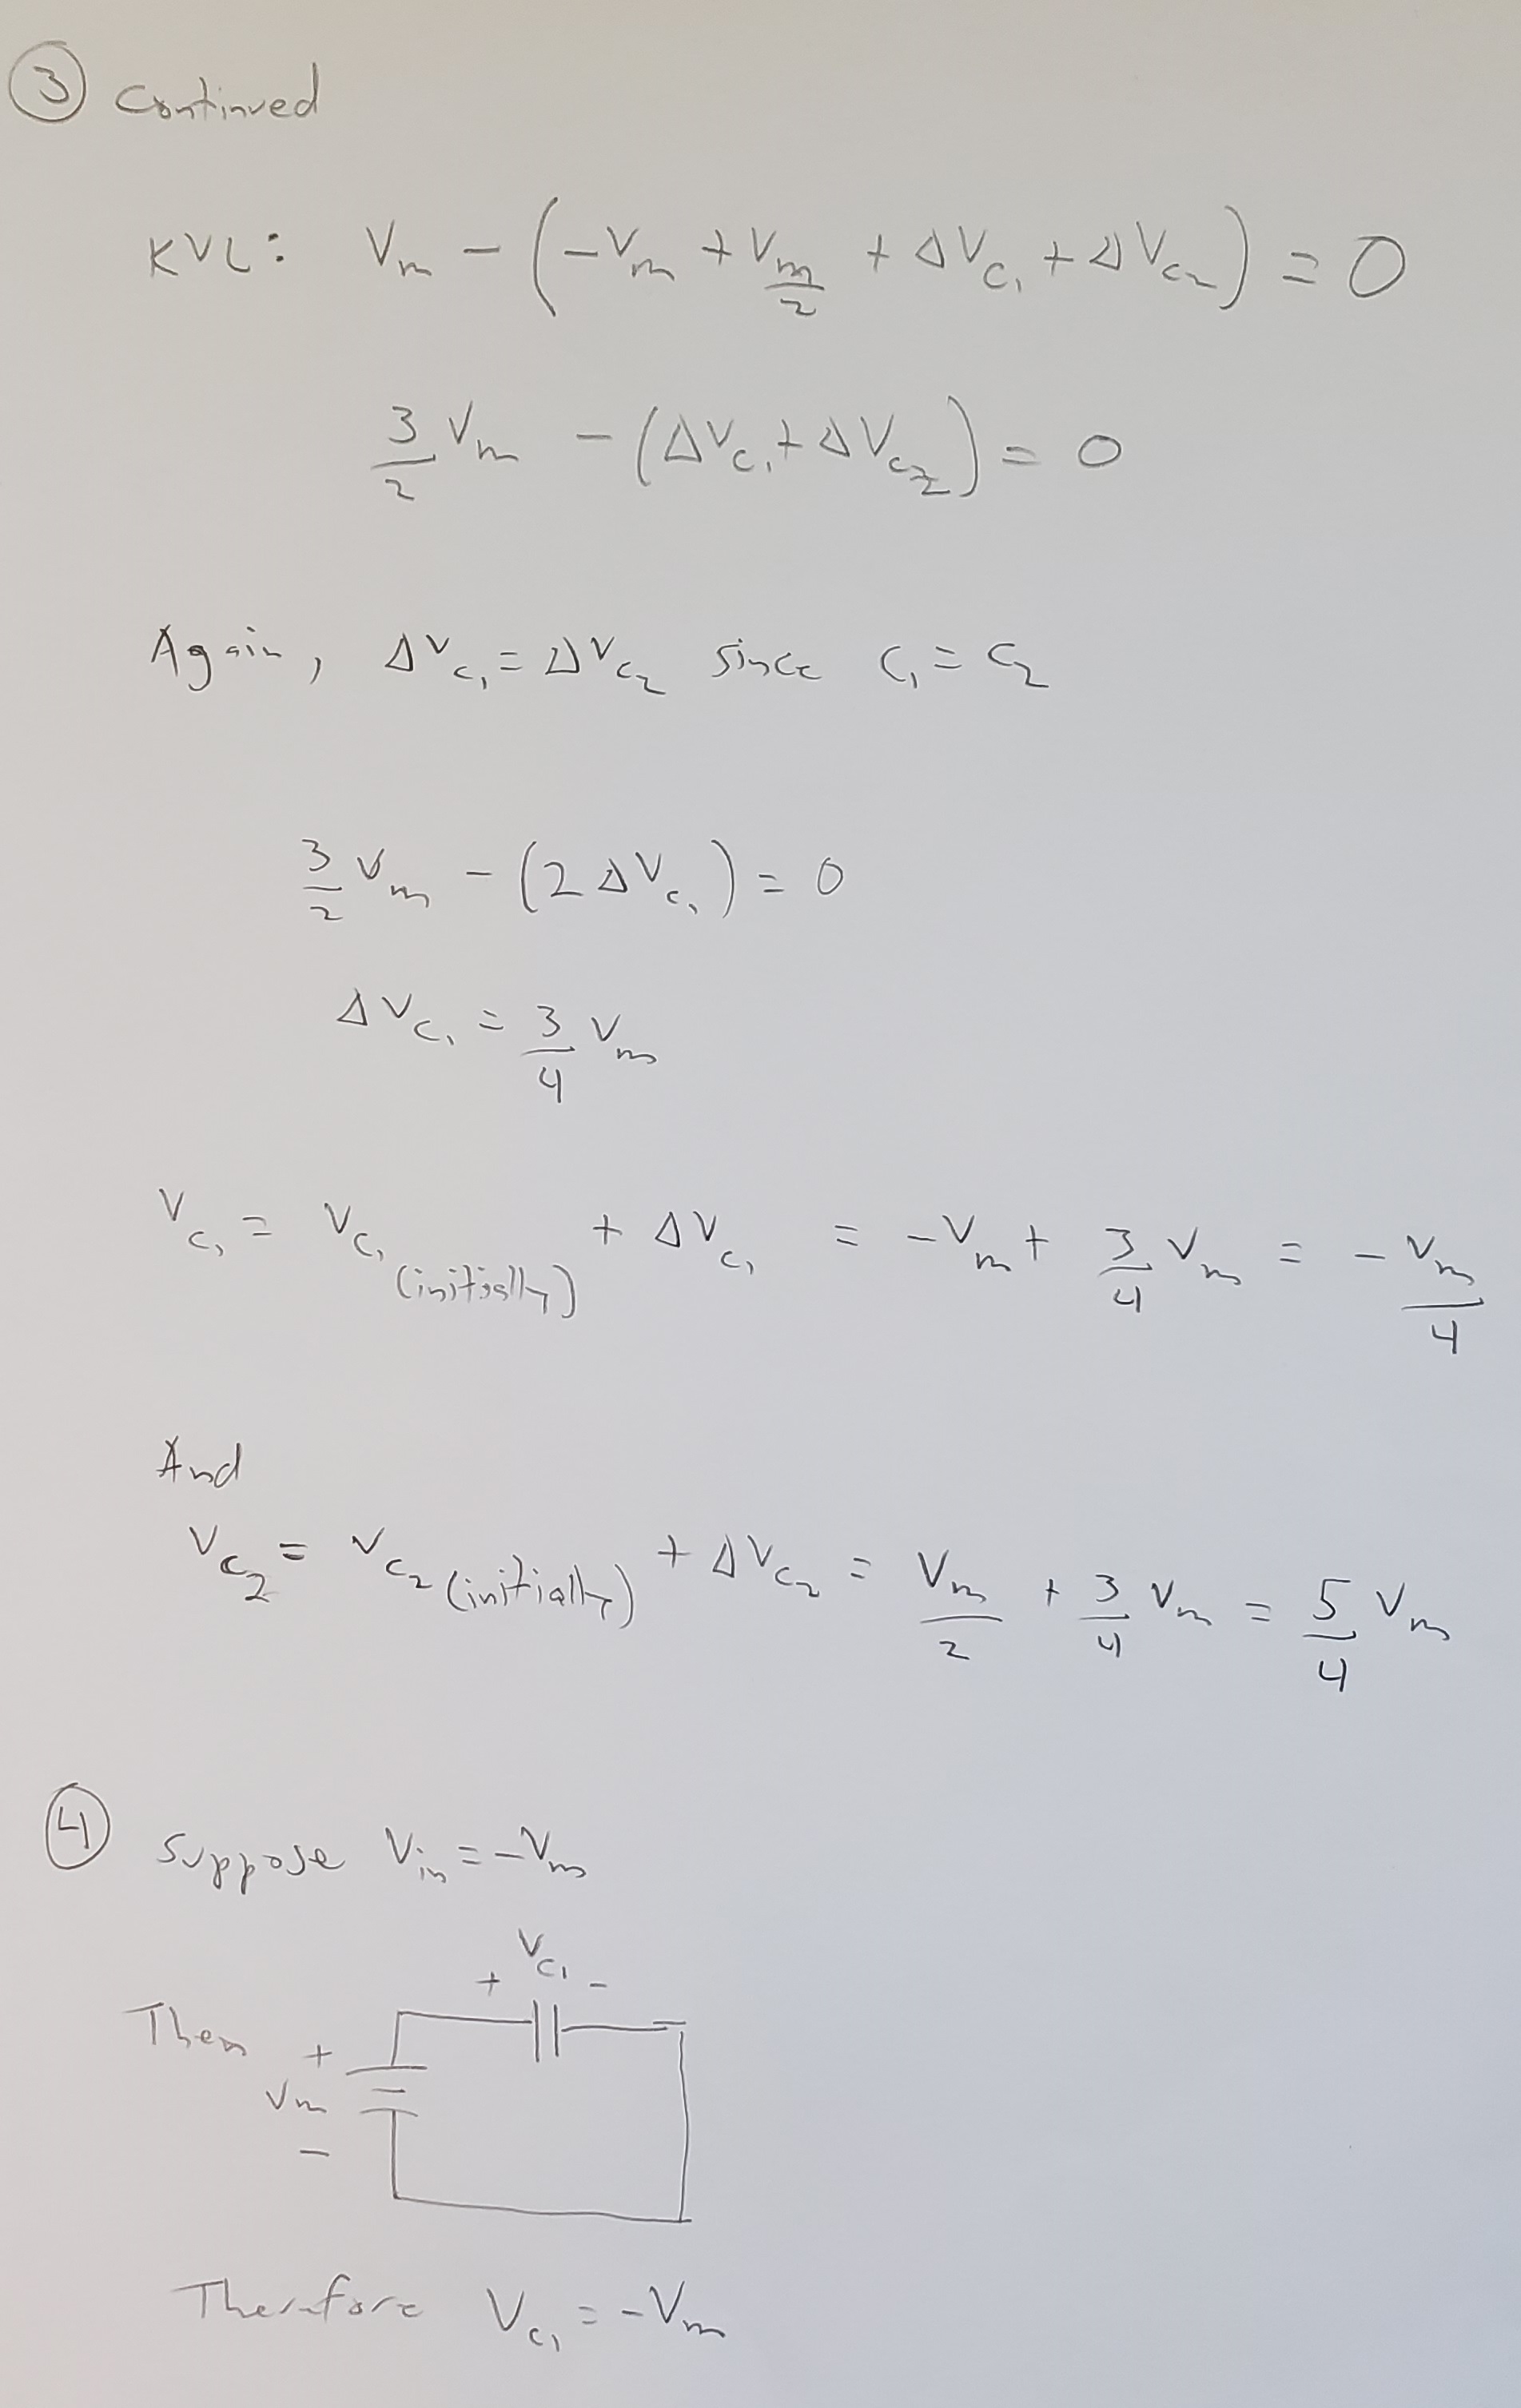 ③ Continued
KVL: Vm - (-Vm + Vm/2 + ΔVC1 + ΔVC2) = 0
3/2 Vm - (ΔVC1 + ΔVC2) = 0
Again, ΔVC1 = ΔVC2 since C1 = C2
3/2 Vm - (2ΔVC1) = 0
ΔVC1 = 3/4 Vm
VC1 = VC1 (initially) + ΔVC1 = -Vm + 3/4 Vm = -Vm/4
And
VC2 = VC2 (initially) + ΔVC2 = Vm/2 + 3/4 Vm = 5/4 Vm
④ Suppose Vin = -Vm
+ VC1 -
Then + Vm -
Therefore VC1 = -Vm